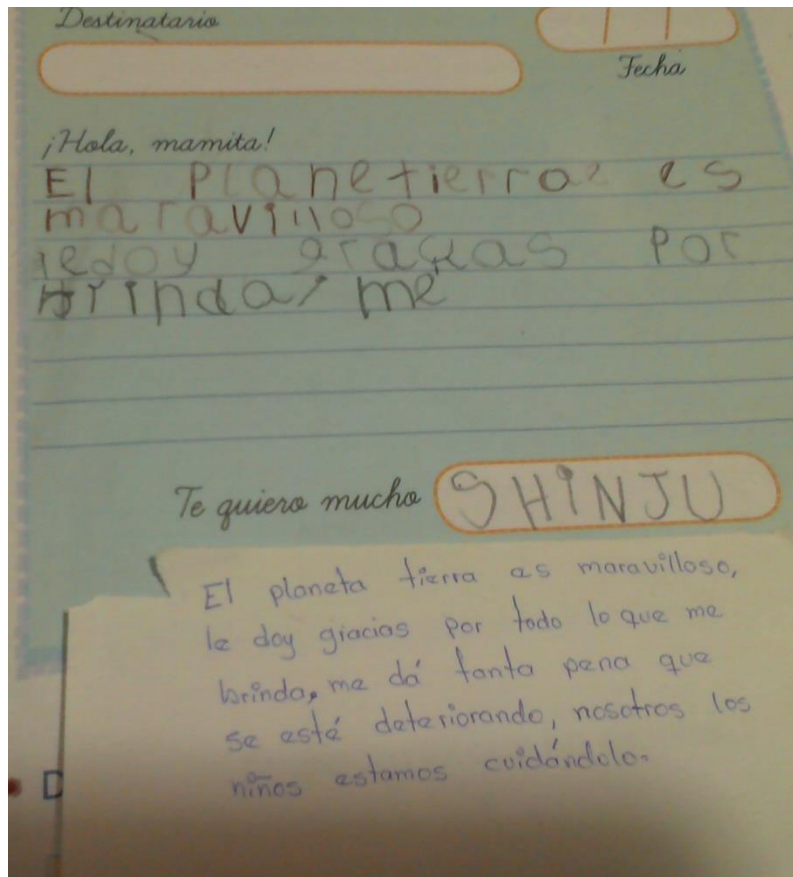 Destinatario
Fecha
¡Hola, mamita!
El planetierra es
maravilloso
ledoy gracias por
brindarme
Te quiero mucho SHINJU
El planeta tierra es maravilloso,
le doy giacias por todo lo que me
brinda, me dá tanta pena que
se esté deteriorando, nosotros los
niños estamos cuidándolo.
D